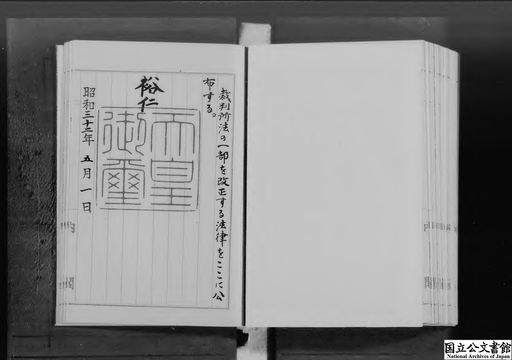 裁判所法の一部を改正する法律をここに公
布する。
裕仁
天皇
御璽
昭和三十三年五月一日
国立公文書館
National Archives of Japan